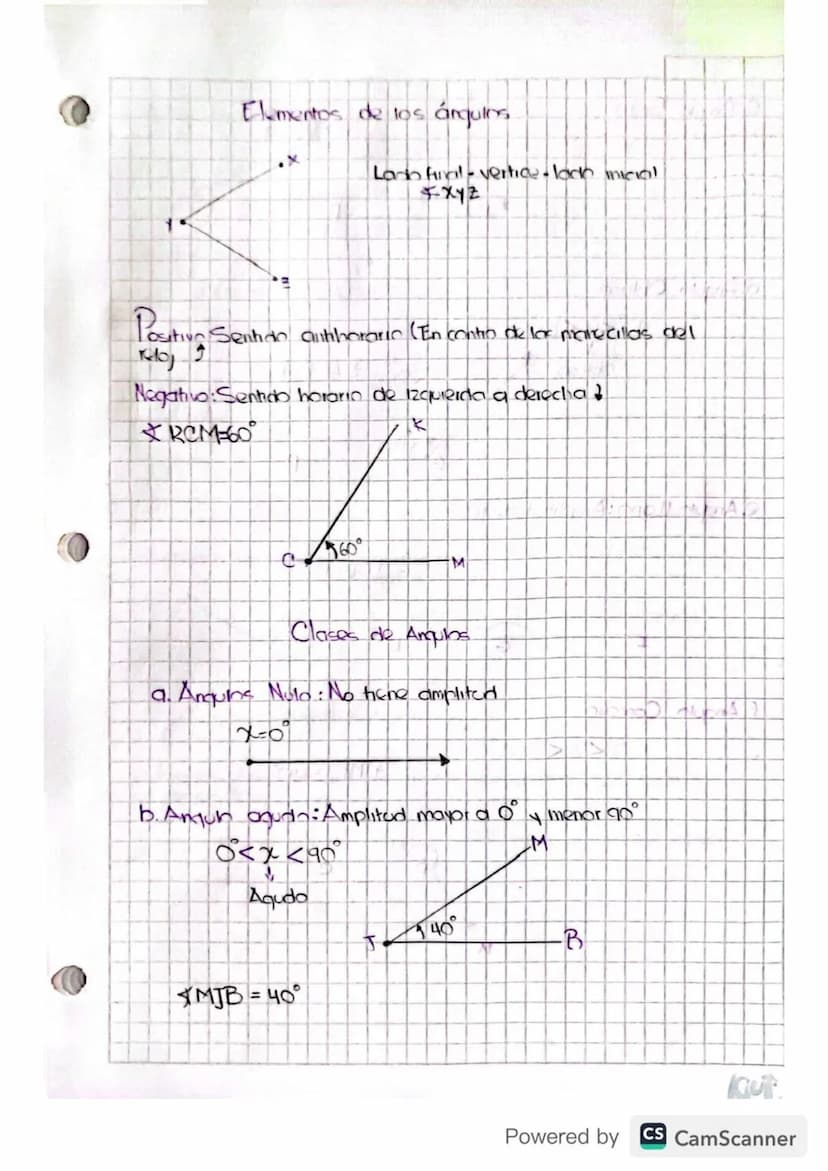 Elementos de los ángulos
x
Lado final - vertice - lado inicial
∢ XYZ
Y
z
Positivo: Sentido antihorario (En contra de las manecillas del
reloj ↑
Negativo: Sentido horario de izquierda a derecha ↓
∢ KCM=60°
K
60°
C
M
Clases de Angulos
a. Angulos Nulo: No tiene amplitud
x=0°
b. Angulo agudo: Amplitud mayor a 0° y menor 90°
0°< x < 90°
M
↓
Agudo
40°
J
B
∢MJB = 40°
Powered by CS CamScanner